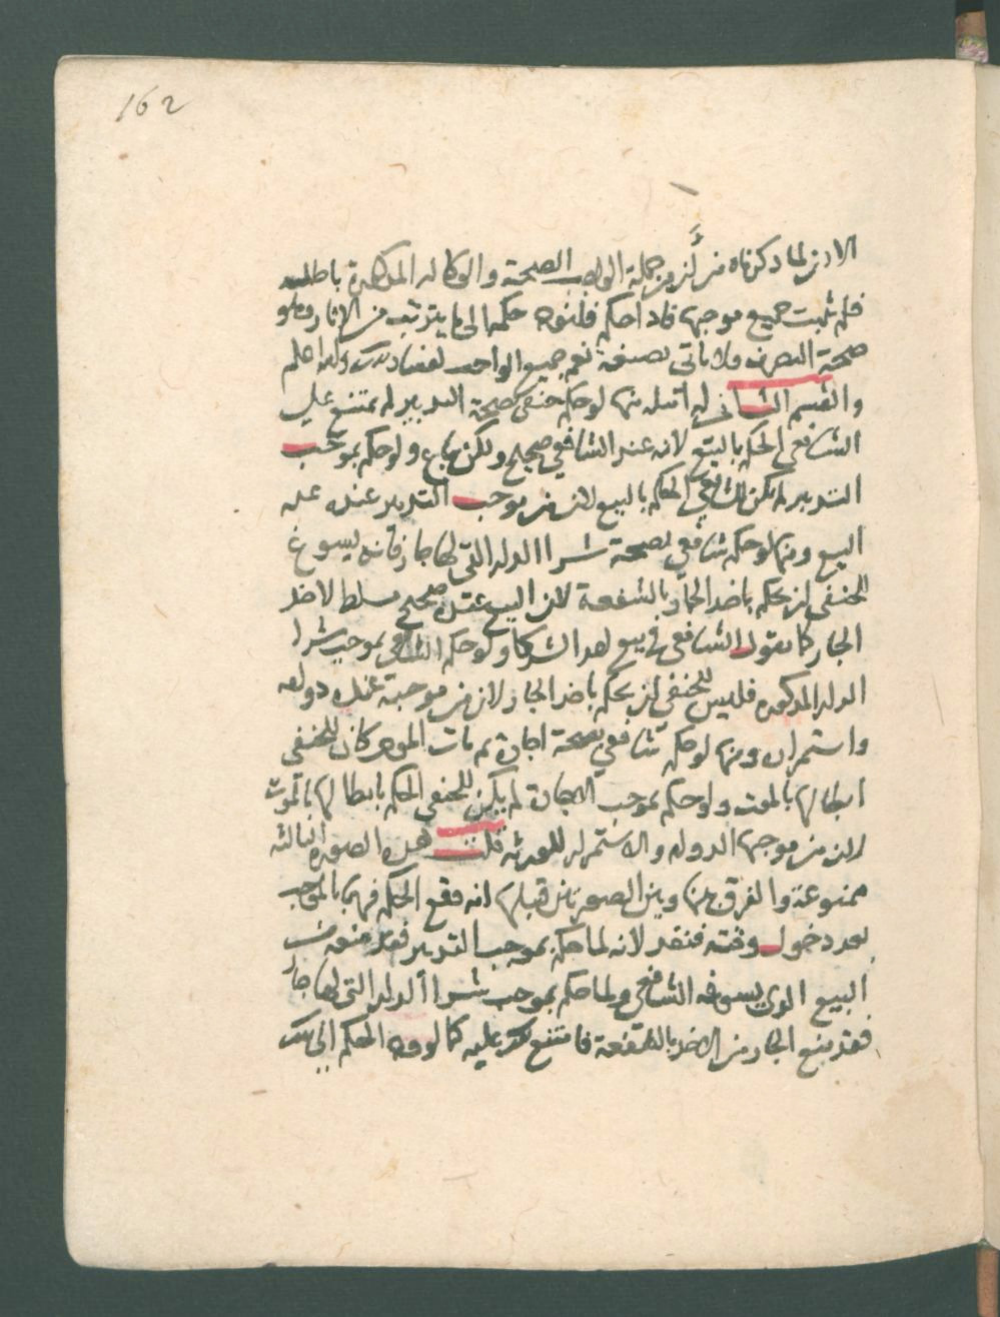 162
الاذن لما ذكرناه من أن من جملة الواجب الصحة والوكالة المذكورة باطلة
فلم يثبت جميع موجبها فاذا حكم فلنوجه حكمه الى ما يترتب من الاثار وهو
صحة التصرف ولا ياتى بصيغة تعم جميع الواجب لفساد ذلك والله اعلم
والقسم الثانى له امثلة منها لو حكم حنفى بصحة التدبير لم يمتنع على
الشافعى الحكم بالبيع لانه عند الشافعى صحيح ولكن يباع ولو حكم بموجب
التدبير لم يكن للشافعى الحكم بالبيع لان من موجب التدبير عنده عدم
البيع ومنها لو حكم شافعى بصحة شرا الدار التى لها جار فانه يسوغ
للحنفى ان يحكم باخذ الجار بالشفعة لان البيع عنده صحيح مسلط لاخذ
الجار كما يقول الشافعى فى بيع احد الشركا ولو حكم الشافعى بموجب شرا
الدار المذكورة فليس للحنفى ان يحكم باخذ الجار لان من موجبه عنده دوامه
واستمراره ومنها لو حكم شافعى بصحة اجارة ثم مات الموجر كان للحنفى
ابطالها بالموت ولو حكم بموجب الاجارة لم يكن للحنفى الحكم بابطالها بالموت
لان من موجبها الدوام والاستمرار للورثة قلت هذه الصورة الثالثة
ممنوعة والفرق بينها وبين الصورتين قبلها انه وقع الحكم فيهما بالموجب
بعد دخول وقته فنفذ لانه لما حكم بموجب التدبير فقد منع من
البيع الذى يسوغه الشافعى ولما حكم بموجب شرا الدار التى لها جار
فقد منع الجار من الاخذ بالشفعة فامتنع عليه كما لو وجه الحكم الى ذلك